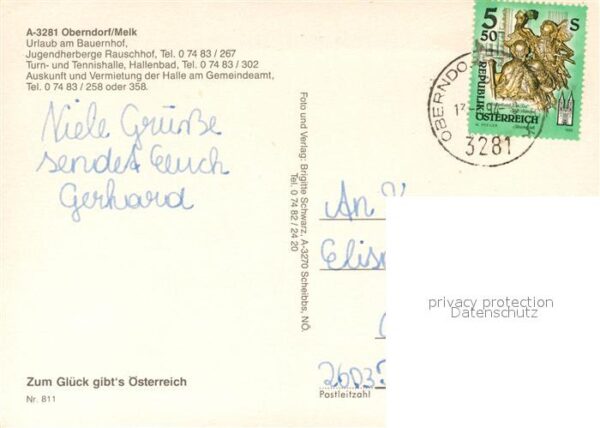 A-3281 Oberndorf/Melk
Urlaub am Bauernhof,
Jugendherberge Rauschhof, Tel. 0 74 83 / 267
Turn- und Tennishalle, Hallenbad, Tel. 0 74 83 / 302
Auskunft und Vermietung der Halle am Gemeindeamt,
Tel. 0 74 83 / 258 oder 358.
Viele Grüße
sendet Euch
Gerhard
Zum Glück gibt's Österreich
Nr. 811
Foto und Verlag: Brigitte Schwarz, A-3270 Scheibbs, NÖ.
Tel. 0 74 82 / 24 20
5 50 S
REPUBLIK
ÖSTERREICH
OBERNDO
3281
An
Elis
2603
Postleitzahl
privacy protection
Datenschutz